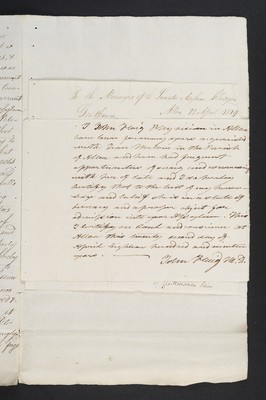 To the Managers of the Lunatic Asylum
Alloa 22 April 1819
Gentlemen
I John Haig Physician in Alloa
have been for many years acquainted
with Jean in the Parish
of Alloa and have had frequent
opportunities of seeing and conversing
with her of late and I do hereby
certify that to the best of my know-
ledge and belief she is in a state of
lunacy and a proper object for
admission into your Asylum. This
I certify on soul and conscience at
Alloa this twenty second day of
April Eighteen hundred and nineteen
years.—
John Haig M.D.